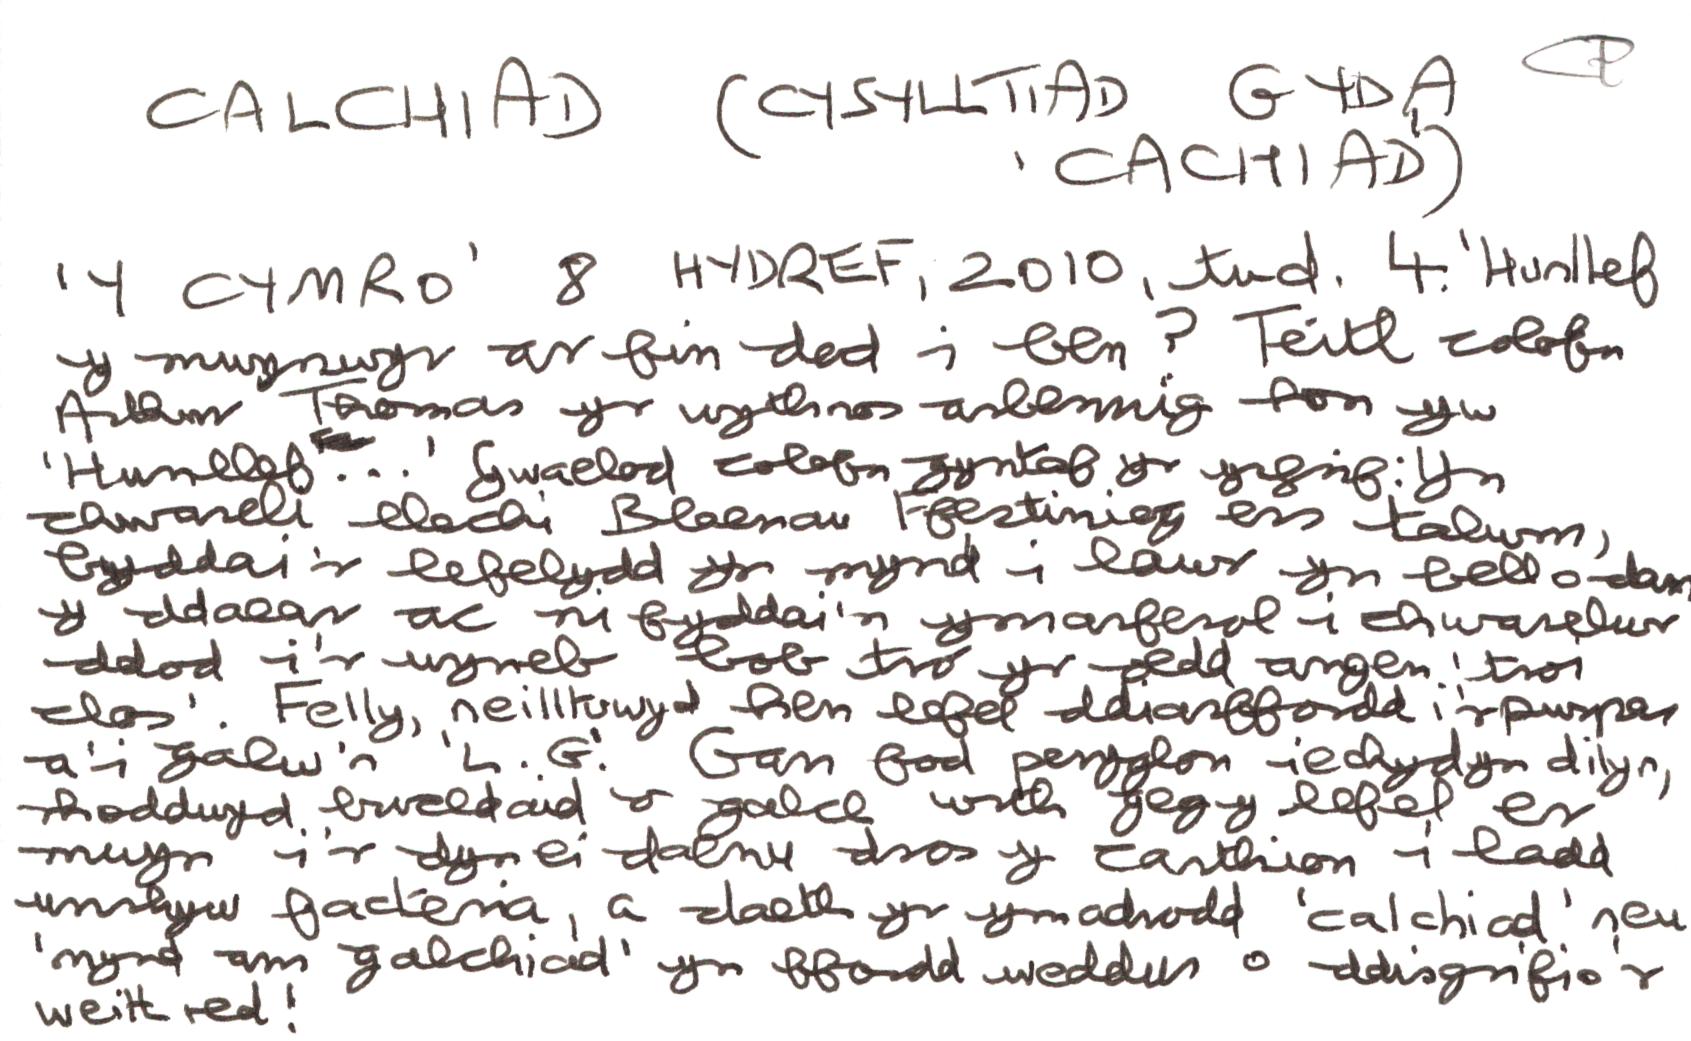 CALCHIAD (CYSYLLTIAD GYDA
'CACHIAD')
'Y CYMRO' 8 HYDREF, 2010, tud. 4. 'Hunllef
y mwynwyr ar fin dod i ben? Teitl colofn
Arthur Thomas yr wythnos arbennig hon yw
'Hunllef ...' Gwaelod colofn gyntaf yr ysgrif: Yn
chwareli llechi Blaenau Ffestiniog ers talwm,
byddai'r lefelydd yn mynd i lawr yn bell o dan
y ddaear ac ni fyddai'n ymarferol i chwarelwr
ddod i'r wyneb bob tro yr oedd angen 'troi
clos'. Felly, neilltuwyd hen lefel ddiarffordd i'r pwrpas
a'i galw'n 'L.G.' Gan fod peryglon iechyd yn dilyn,
rhoddwyd bwcedaid o galch wrth geg y lefel er
mwyn i'r dyn ei daenu dros y carthion i ladd
unrhyw facteria, a daeth yr ymadrodd 'calchiad' neu
'mynd am galchiad' yn ffordd weddus o ddisgrifio'r
weithred!